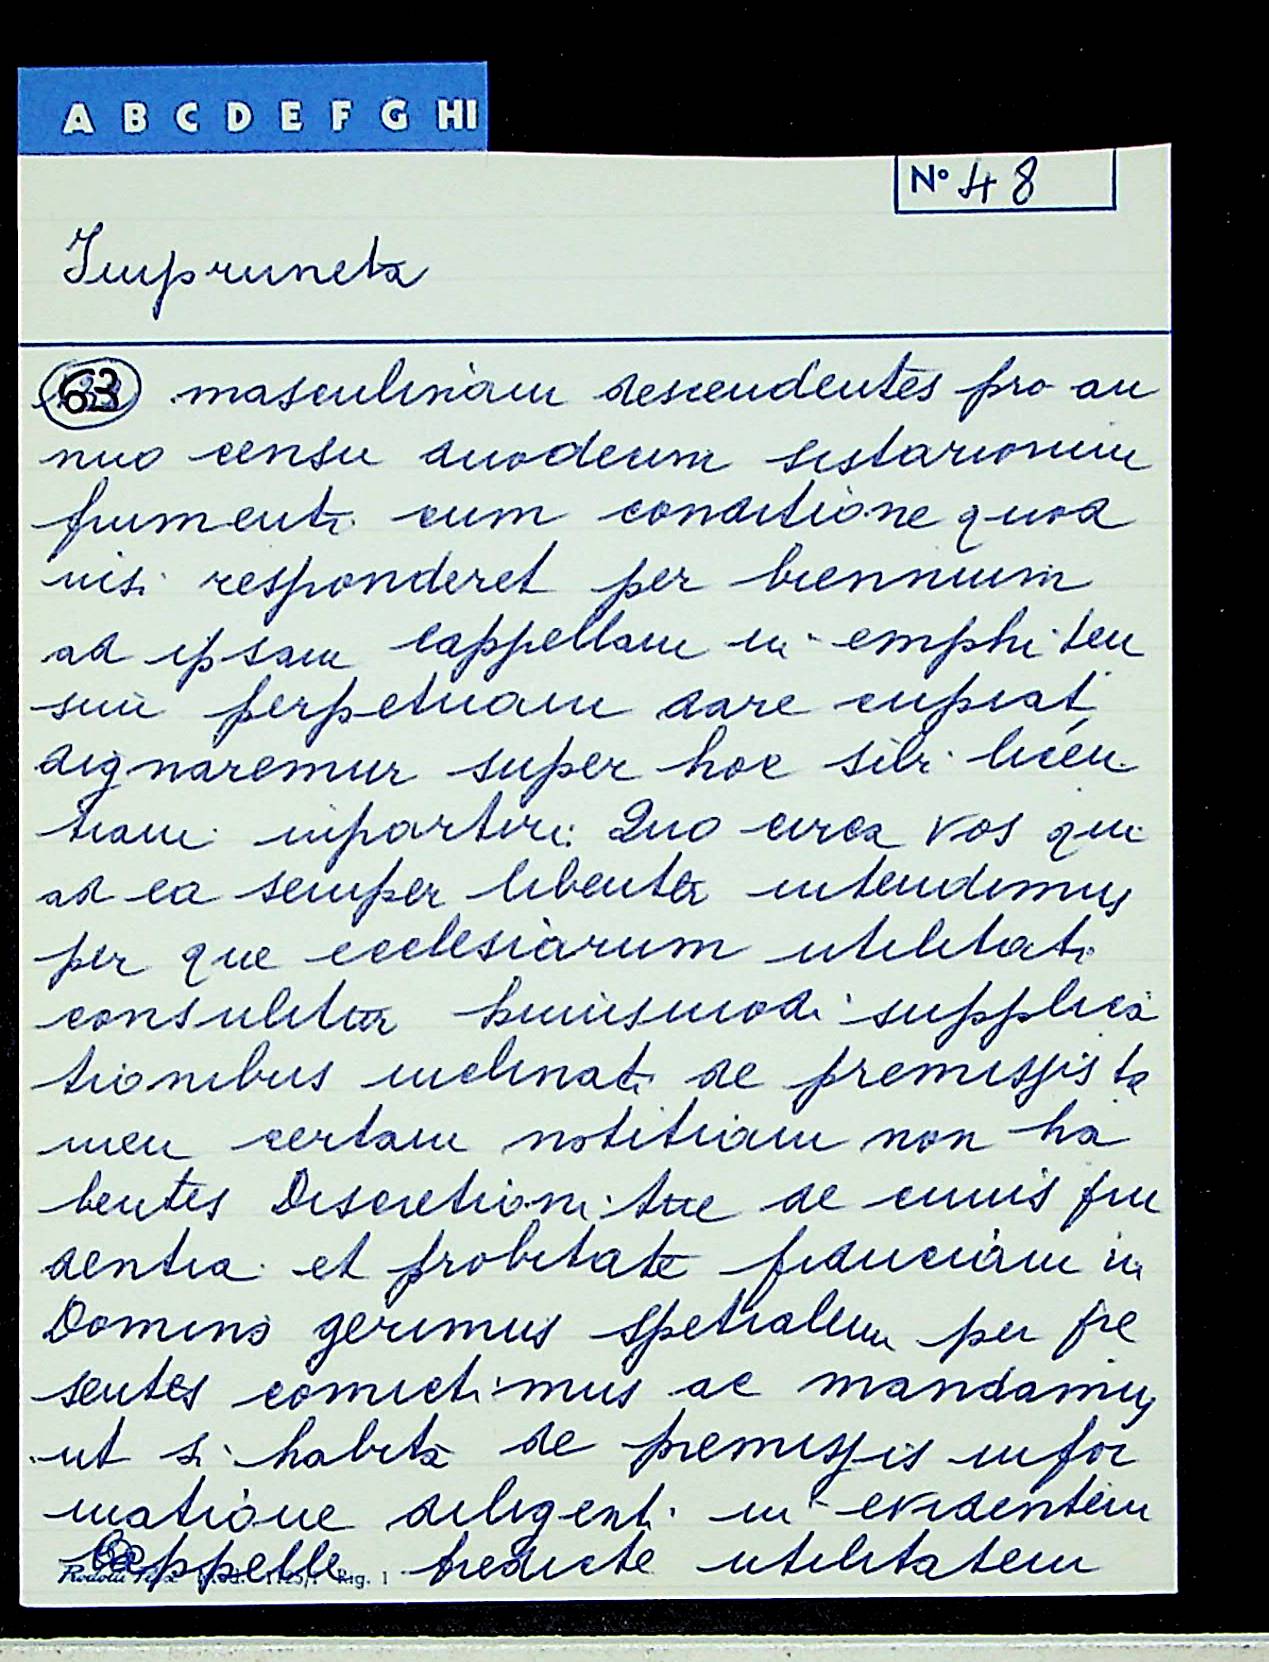 A B C D E F G HI
N° 48
Impruneta
63 masculinam descendentes pro an
nuo censu duodecim sistarionum
frumenti cum conditione quod
nisi responderet per biennium
ad ipsam cappellam in emphiteu
sim perpetuam dare cupiat
dignaremur super hoc sibi licen
tiam inpartiri. Quo circa vos qui
ad ea semper libenter intendimus
per que ecclesiarum utilitati
consulitur huiusmodi supplica
tionibus inclinati de premissis ta
men certam notitiam non ha
bentes Discretioni tue de cuius pru
dentia et probitate fiduciam in
Domino gerimus spetialem per pre
sentes comictimus ac mandamus
ut si habita de premissis infor
matione diligenti in evidentem
cappelle predicte utilitatem
Rig. 1